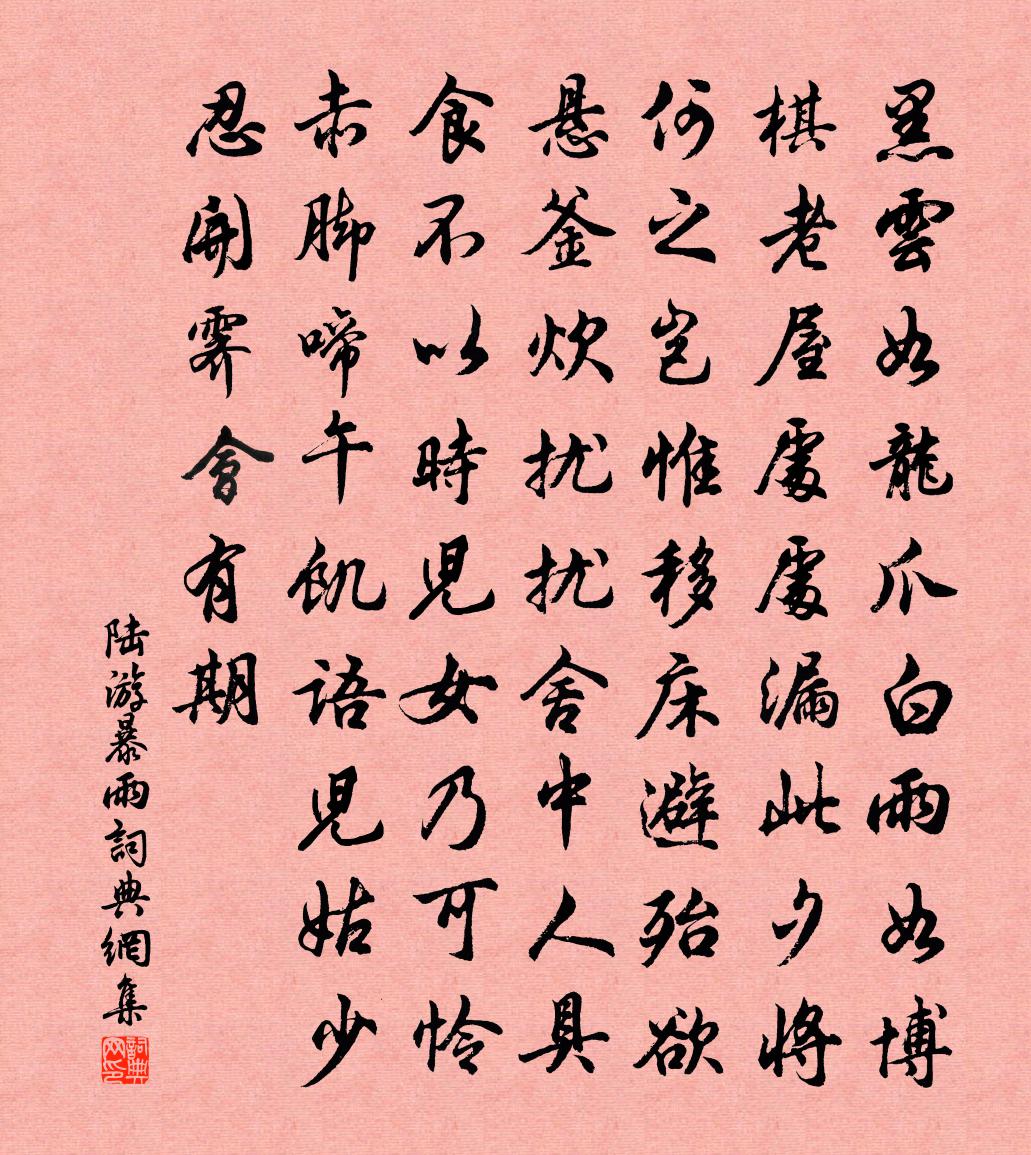 黑雲如龍爪白雨如博
棋老屋處處漏此夕將
何之豈惟移床避殆欲
悬釜炊扰扰舍中人具
食不以時児女乃可怜
赤脚啼午飢語児姑少
忍開霽會有期
陆游暴雨詞典網集
詞典网印